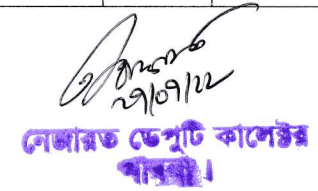 ২৭/০৭/২২
নেজারত ডেপুটি কালেক্টর
পাবনা।